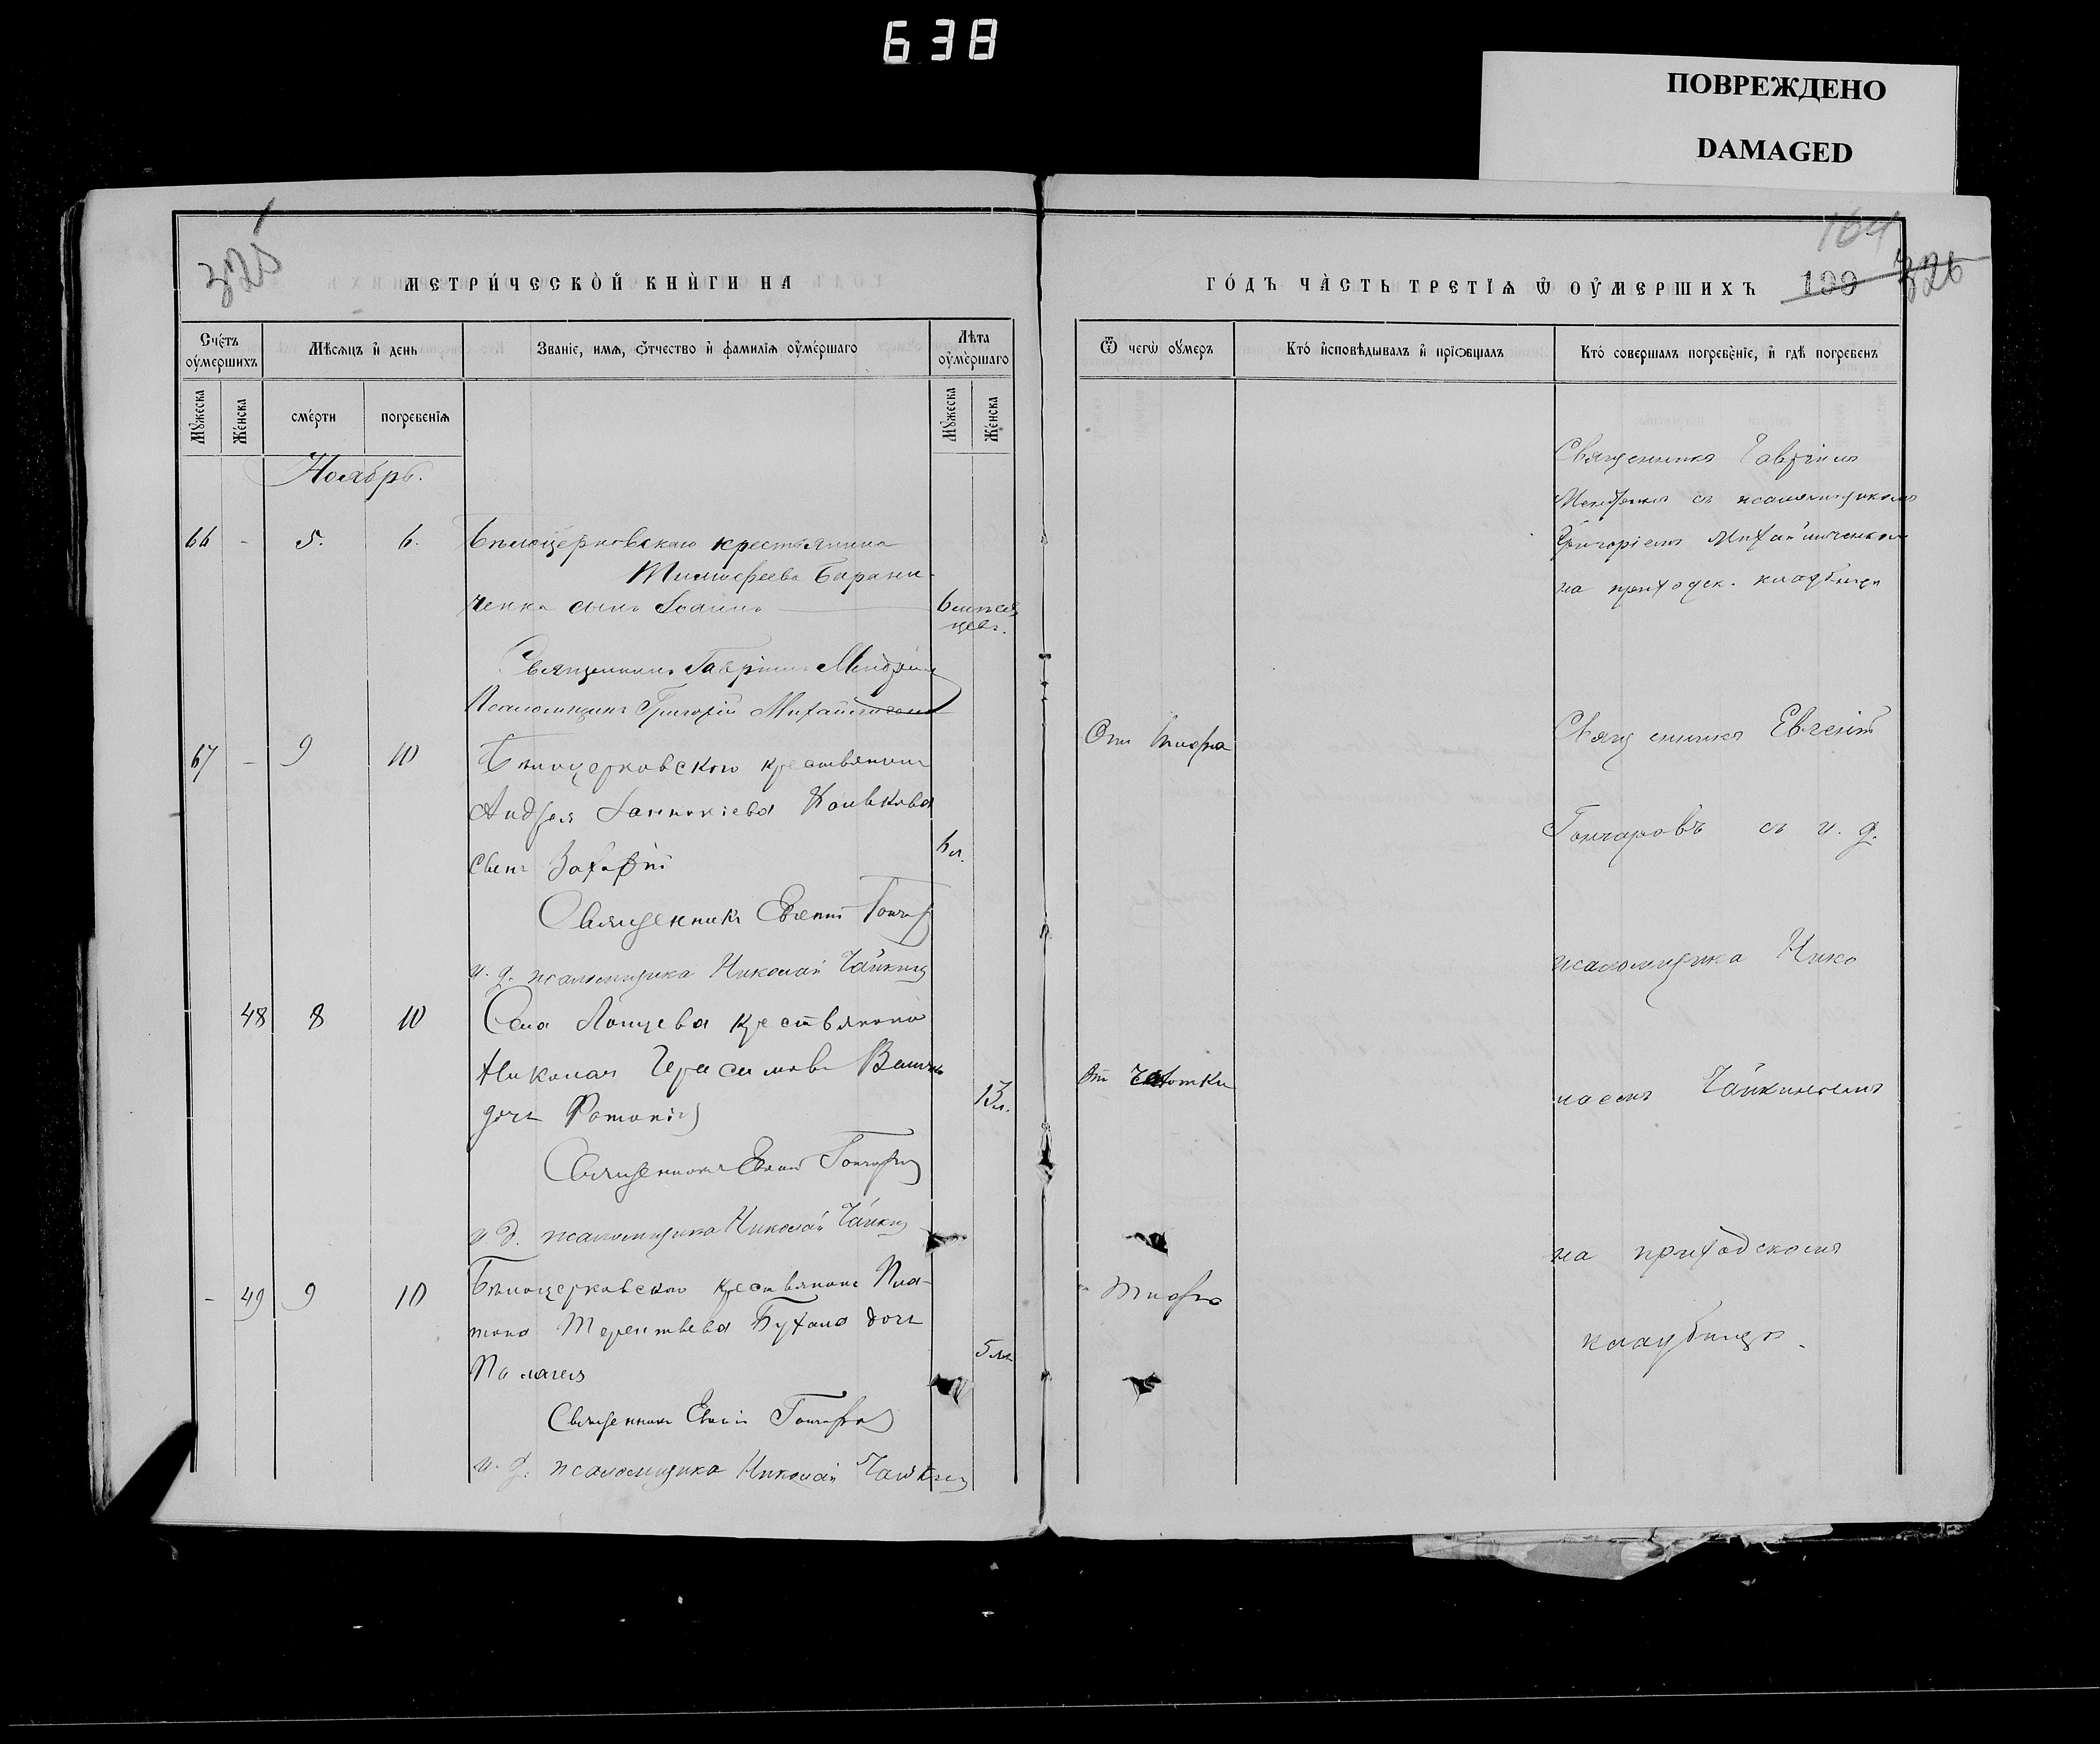 638
ПОВРЕЖДЕНО
DAMAGED
325
МЕТРИ́ЧЕСКО̀Й КНЍГИ НА
Сче́тъ ᲂу҆ме́ршихъ
Мѣсѧцъ и҆ день
Званіе, имѧ, ѻ҆́тчество и҆ фамиліѧ ᲂу҆ме́ршаго
Лѣта ᲂу҆ме́ршаго
Мꙋжеска
Же́нска
сме́рти
погребеніѧ
Мꙋжеска
Же́нска
Ноябрь.
66 - 5. 6. Бѣлоцерковскаго крестьянина
Тимофеева Барани-
ченка сынъ Іоаннъ
6 мѣся
цевъ.
Священникъ Гавріилъ
Псаломщикъ Григорій
67 - 9 10 Бѣлоцерковского крестьянина
Андрея
сынъ Захарій
6 л.
Священникъ Евгеній Гончаровъ
и. д. псаломщика Николай Чайкинъ
48 8 10 Села крестьянина
Николая Герасимова
дочь
13 л.
Священникъ Евгеній Гончаровъ
и. д. псаломщика Николай Чайкинъ
- 49 9 10 Бѣлоцерковского крестьянина Пла-
тона Терентьева дочь
Палагея
5 лѣ
Священникъ Евгеній Гончаровъ
и. д. псаломщика Николай Чайкинъ
164
ГО́ДЪ ЧА̀СТЬ ТРЕТІѦ Ѡ҆ ОУ҆МЕРШИХЪ
199
326
Ѿ чегѡ ᲂу҆́меръ
Кто́ и҆сповѣдывалъ и҆ пріѡбщалъ
Кто́ соверша́лъ погребе́ніе, и҆ гдѣ̀ погребенъ
Священникъ Гавріилъ
съ псаломщикомъ
Григоріемъ
на приходск. кладбищѣ
От тифа
Священникъ Евгеній
Гончаровъ съ и. д.
псаломщика Нико
От чахотки
лаемъ Чайкинымъ
на приходскомъ
" тифа
кладбищѣ.